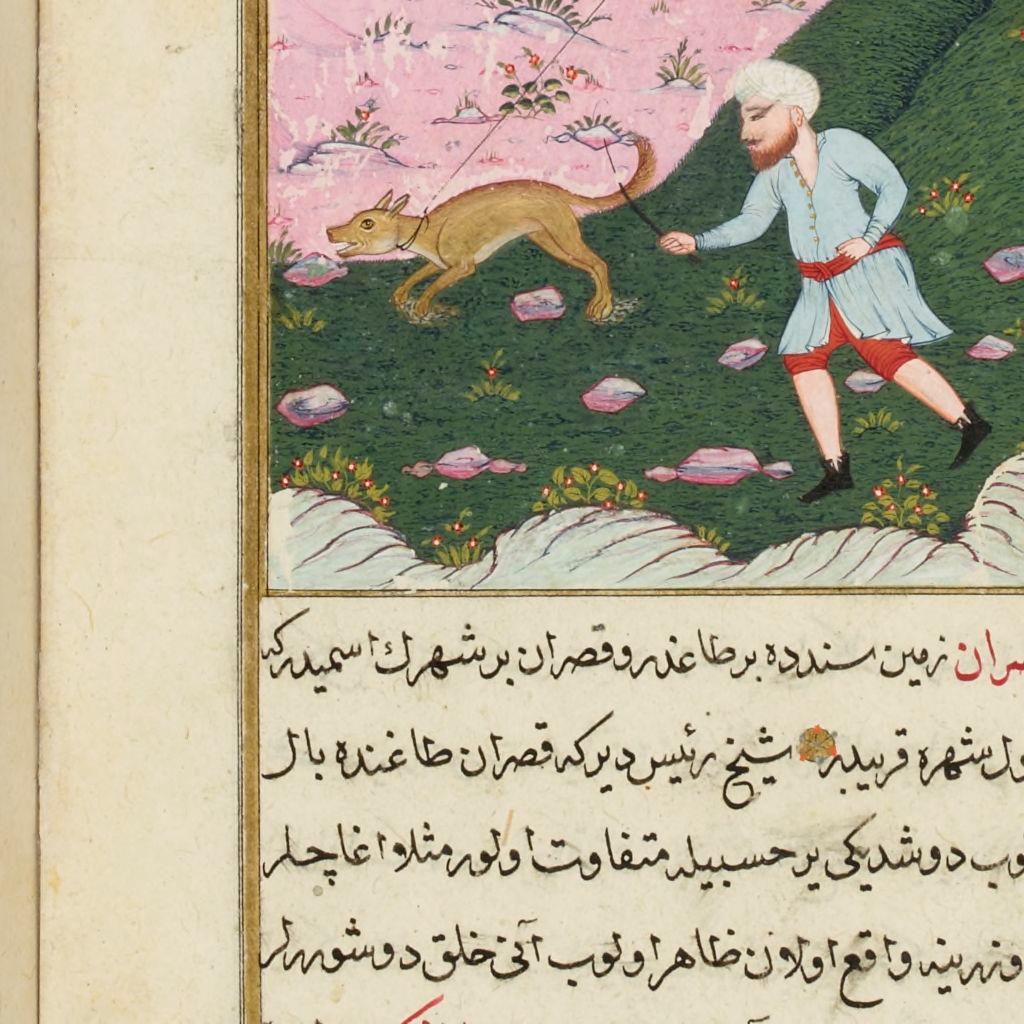 زمين سنده بر طاغدر و قصران بر شهرك اسميدر كه
شهره قريبدر شيخ رئيس دير كه قصران طاغنده بال
دوشديكى ير حسبيله متفاوت اولور مثلا اغاچلر
واقع اولان ظاهر اولوب آنى خلق دوشوررلر